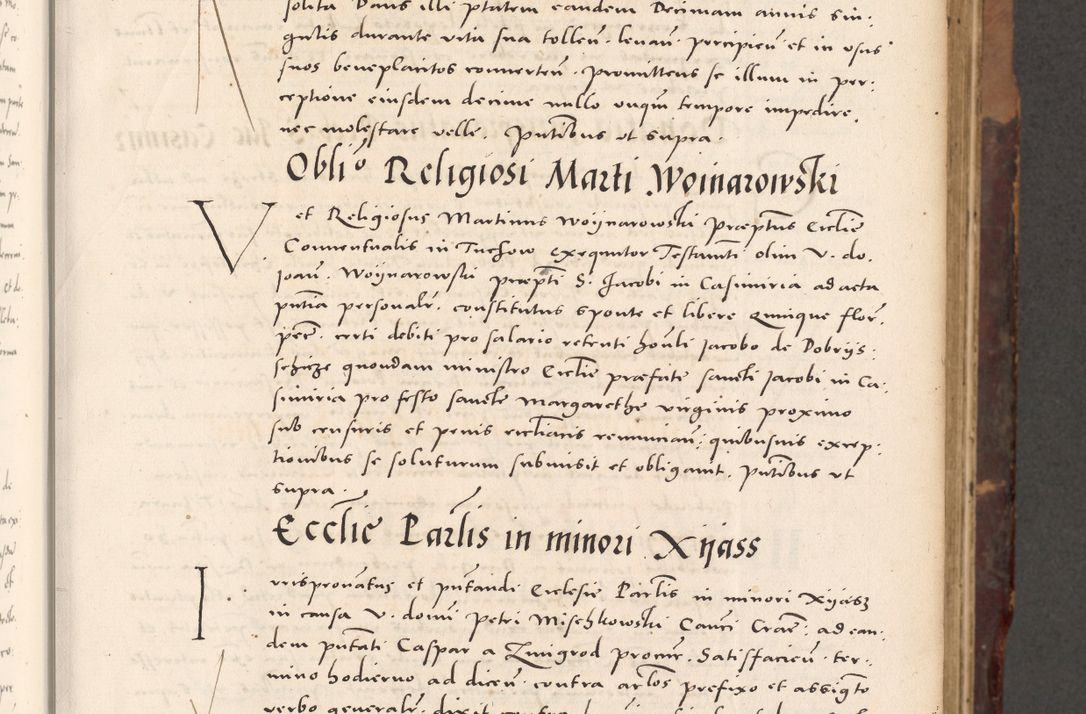 solita Dans illi ptatem eandem Decimam annis sin:
gulis durante vita sua tollen̄. levan̄. percipien̄ et in vsus
suos beneplacitos converten̄. promittens se illum in per:
ceptione eiusdem decime nullo vnqm̄ tempore impedire,
nec molestare velle. Pn̄tibus vt supra.
Oblio Religiosi Marti Woinarowski
Vet Religiosus Martinus Woÿnarowski præpt̄us Ecclīe
Conventualis in Tuchow exequutor Testam̄ti olim V. do.
Joan̄. Woÿnarowski præpti S. Jacobi in Casimiria ad acta
pn̄tia personalr̄. constitutus sponte et libere Quinque flor̄
pec̄. certi debiti pro salario retenti hon̄li Jacobo de Dobrÿs:
schicze quondam ministro Ecclīe præfate sancti Jacobi in Ca:
simiria pro festo sancte Margarethe virginis proximo
sub censuris et penis eccl̄iacis renuncian̄: quibusuis excep:
tionibus se soluturum submisit et obligavit. Pn̄tibus vt
supra.
Ecclīe Par̄lis in minori Xÿass
Iurisprovatus et pn̄tandi Ecclesie Par̄lis in minori Xÿasz
in causa V. domī Petri Mischkowski Can̄ci Crac̄. ad ean:
dem pn̄tati Caspar a Zmigrod procur̄. Satisfacien̄. ter:
mino hodierno ad dicen̄. contra ar̄tlos prefixo et assig̅to
verbo generalr̄. dixit contra